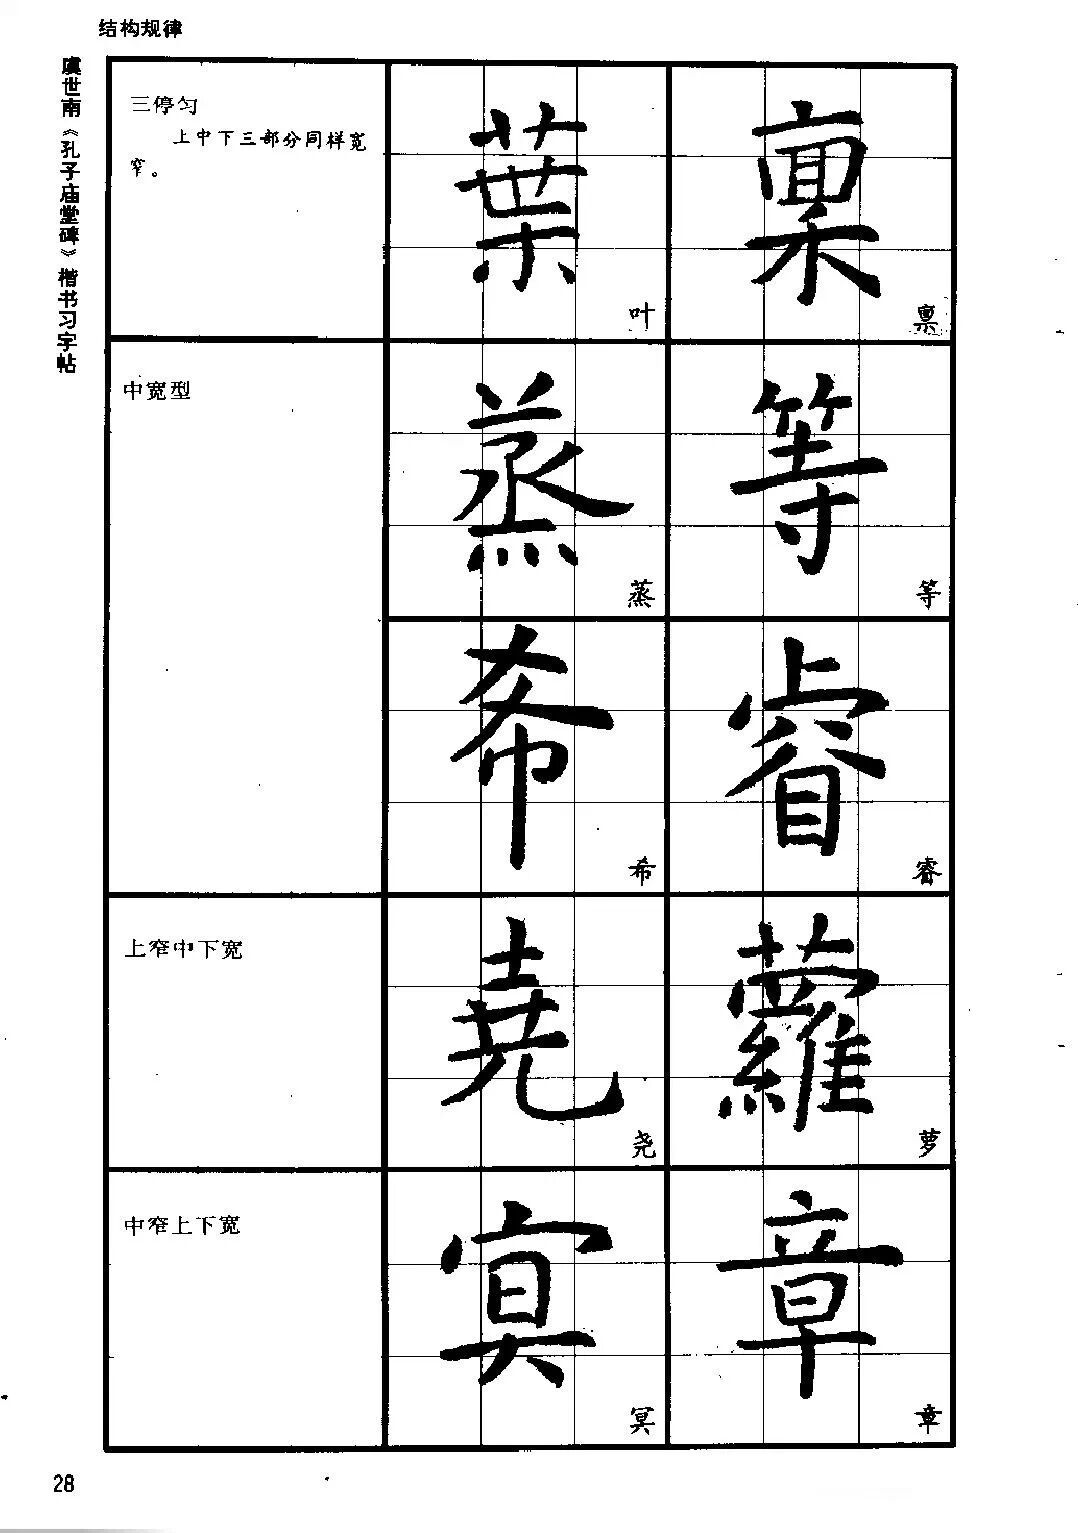 结构规律
虞世南《孔子庙堂碑》楷书习字帖
三停匀
上中下三部分同样宽
窄。
葉
叶
稟
禀
中宽型
蒸
蒸
等
等
希
希
睿
睿
上窄中下宽
堯
尧
蘿
萝
中窄上下宽
冥
冥
章
章
28